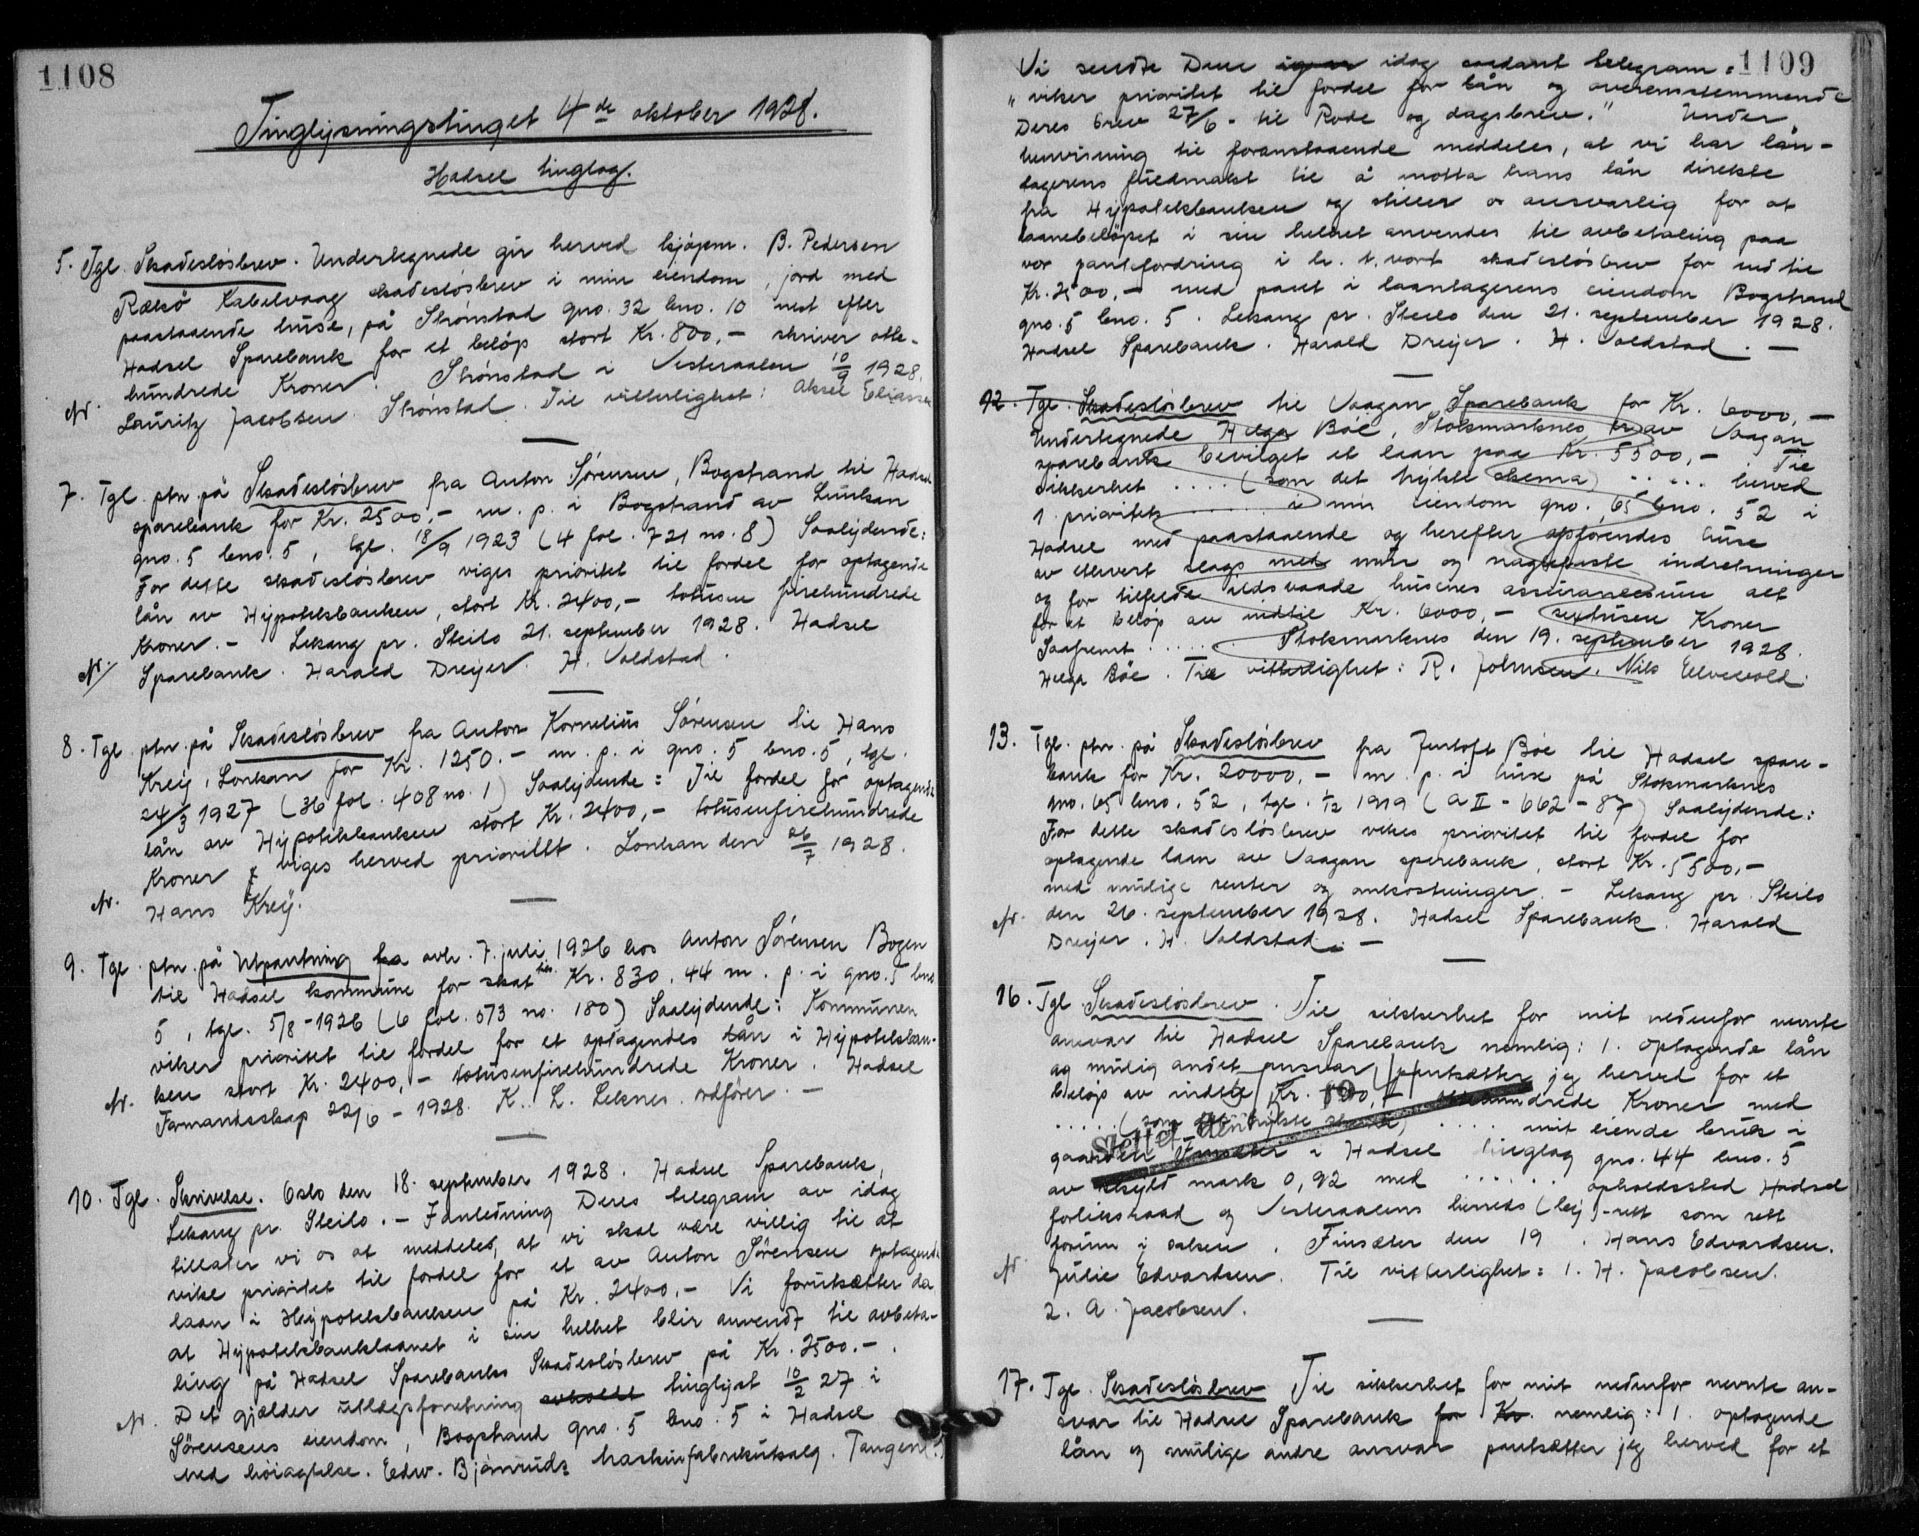 1108
Tinglysningstinget 4de oktober 1928.
Hadsel tinglag.
5. Tgl. Skadesløsbrev. Undertegnede gir herved kjøpm. B. Pedersen
Rælsø Kabelvaag skadesløsbrev i min eiendom, jord med
paastaaende huse, på Strønstad gno. 32 bno. 10 nest efter
Hadsel Sparebank for et beløp stort Kr. 800,- skriver otte-
hundrede Kroner. Strønstad i Vesteraalen 10/9 1928.
N. Lauritz Jacobsen Strønstad. Til vitterlighet: Aksel Eliassen
7. Tgl. ptn. på Skadesløsbrev fra Anton Sørensen, Bogstrand til Hadsel
sparebank for Kr. 2500,- m. p. i Bogstrand av Lunkan
gno. 5 bno. 5, tgl. 18/9 1923 (4 fol. 721 no. 8) Saalydende:
For dette skadesløsbrev viges prioritet til fordel for optagende
lån av Hypotekbanken, stort Kr. 2400,- totusen firehundrede
Kroner. - Leksang pr. Steilo 21. september 1928. Hadsel
N. Sparebank. Harald Dreyer. H. Voldstad.
8. Tgl. ptn. på Skadesløsbrev fra Anton Kornelius Sørensen til Hans
Krey, Lonkan for Kr. 1250.- m. p. i gno. 5 bno. 5, tgl.
24/3 1927 (36 fol. 408 no. 1) Saalydende: Til fordel for optagende
lån av Hypotekbanken stort Kr. 2400,- totusenfirehundrede
Kroner viges herved prioritet. Lonkan den 26/7 1928.
N. Hans Krey.
9. Tgl. ptn. på Utpantning fra avh. 7. juli 1926 hos Anton Sørensen Bogen
til Hadsel kommune for skat til Kr. 830.44 m. p. i gno. 5 bno
5, tgl. 5/8-1926 (6 fol. 573 no. 180) Saalydende: Kommunen
viker prioritet til fordel for et optagendes lån i Hypotekban-
N. ken stort Kr. 2400,- totusenfirehundrede Kroner. Hadsel
Formandsskap 22/6-1928. K. L. Leknes. ordfører. -
10. Tgl. Skrivelse. Oslo den 18. september 1928. Hadsel Sparebank,
Leksang pr. Steilo. - I anledning Deres telegram av idag
tillater vi os at meddeles, at vi skal være villig til at
vike prioritet til fordel for et av Anton Sörensen optagende
laan i Hypotekbanken på Kr. 2400.- Vi forutsætter da
at Hypotekbanklaanet i sin helhet blir anvendt til avbeta-
ling på Hadsel Sparebanks Skadesløsbrev på Kr. 2500.-.
N. Det gjælder utlægsforretning avholdt tinglyst 10/2 27 i
Sörensens eiendom, Bogstrand gno. 5 bno. 5 i Hadsel
med höiagtelse. Edw. Bjørnruds maskinfabrikutsalg. Tangen (?)
1109
Vi sendte Dem igaar idag saadant telegram:
"viker prioritet til fordel for lån og overensstemmende
Deres brev 27/6 - til Rode og dagsbrev." Under
henvisning til foranstaaende meddeles, at vi har lån-
tagerens fuldmakt til å motta hans lån direkte
fra Hypotekbanken og stiller os ansvarlig for at
laanebeløpet i sin helhet anvendes til avbetaling paa
vor pantefordring i h. t. vort skadesløsbrev for indtil
Kr. 2500,- med pant i laantagerens eiendom Bogstrand
gno. 5 bno. 5. Leksang pr. Steilo den 21. september 1928.
Hadsel Sparebank. Harald Dreyer. H. Voldstad. -
12. Tgl. Skadesløsbrev til Vaagan Sparebank for Kr. 6000,-
Undertegnede Helga Böe, Stokmarknes har av Vaagan
sparebank bevilget et laan paa Kr. 5500,- Til
sikkerhet .... (som det trykte skema) ..... herved
1 prioritet ...... i min eiendom gno. 65 bno. 52 i
Hadsel med paastaaende og herefter opførendes huse
av ethvert slags med mur og naglefaste indretninger
og for tilfelde ildsvaade husenes assurancesum alt
for et beløp av indtil Kr. 6000,- sextusen Kroner
Saafremt ...... Stokmarknes den 19. september 1928.
Helga Böe. Til vitterlighet: R. Johnsen. Nils Elvevold.
13. Tgl. ptn. på Skadesløsbrev fra Jentoft Böe til Hadsel spare-
bank for Kr. 20000,- m. p. i huse på Stokmarknes
gno. 65 bno. 52, tgl. 1/12 1919 (A II - 662 - 87) Saalydende:
For dette skadesløsbrev vikes prioritet til fordel for
optagende laan av Vaagan sparebank, stort Kr. 5500,-
med mulige renter og omkostninger. - Leksang pr. Steilo
N. den 26. september 1928. Hadsel Sparebank. Harald
Dreyer. H. Voldstad. -
16. Tgl. Skadesløsbrev. Til sikkerhet for mit nedenfor nevnte
ansvar til Hadsel Sparebank nemlig: 1. optagende lån
og mulig andet ansvar, pantsætter jeg herved for et
beløp av indtil Kr. 800,- ottehundrede Kroner med
..... (som det trykte skema) .... mit eiende bruk i
Slettet
gaarden Finsæter i Hadsel tinglag gno. 44 bno. 5
av skyld mark 0,92 med ...... opholdssted Hadsel
forliksraad og Vesteraalens herreds (by)-rett som rett
forum i saken. Finsæter den 19 . Hans Edvardsen.
N. Julie Edvardsen. Til vitterlighet: 1. H. Jacobsen.
2. A. Jacobsen.
17. Tgl. Skadesløsbrev Til sikkerhet for mit nedenfor nevnte an-
svar til Hadsel Sparebank for Kr. nemlig: 1. optagende
lån og mulige andre ansvar pantsætter jeg herved for et